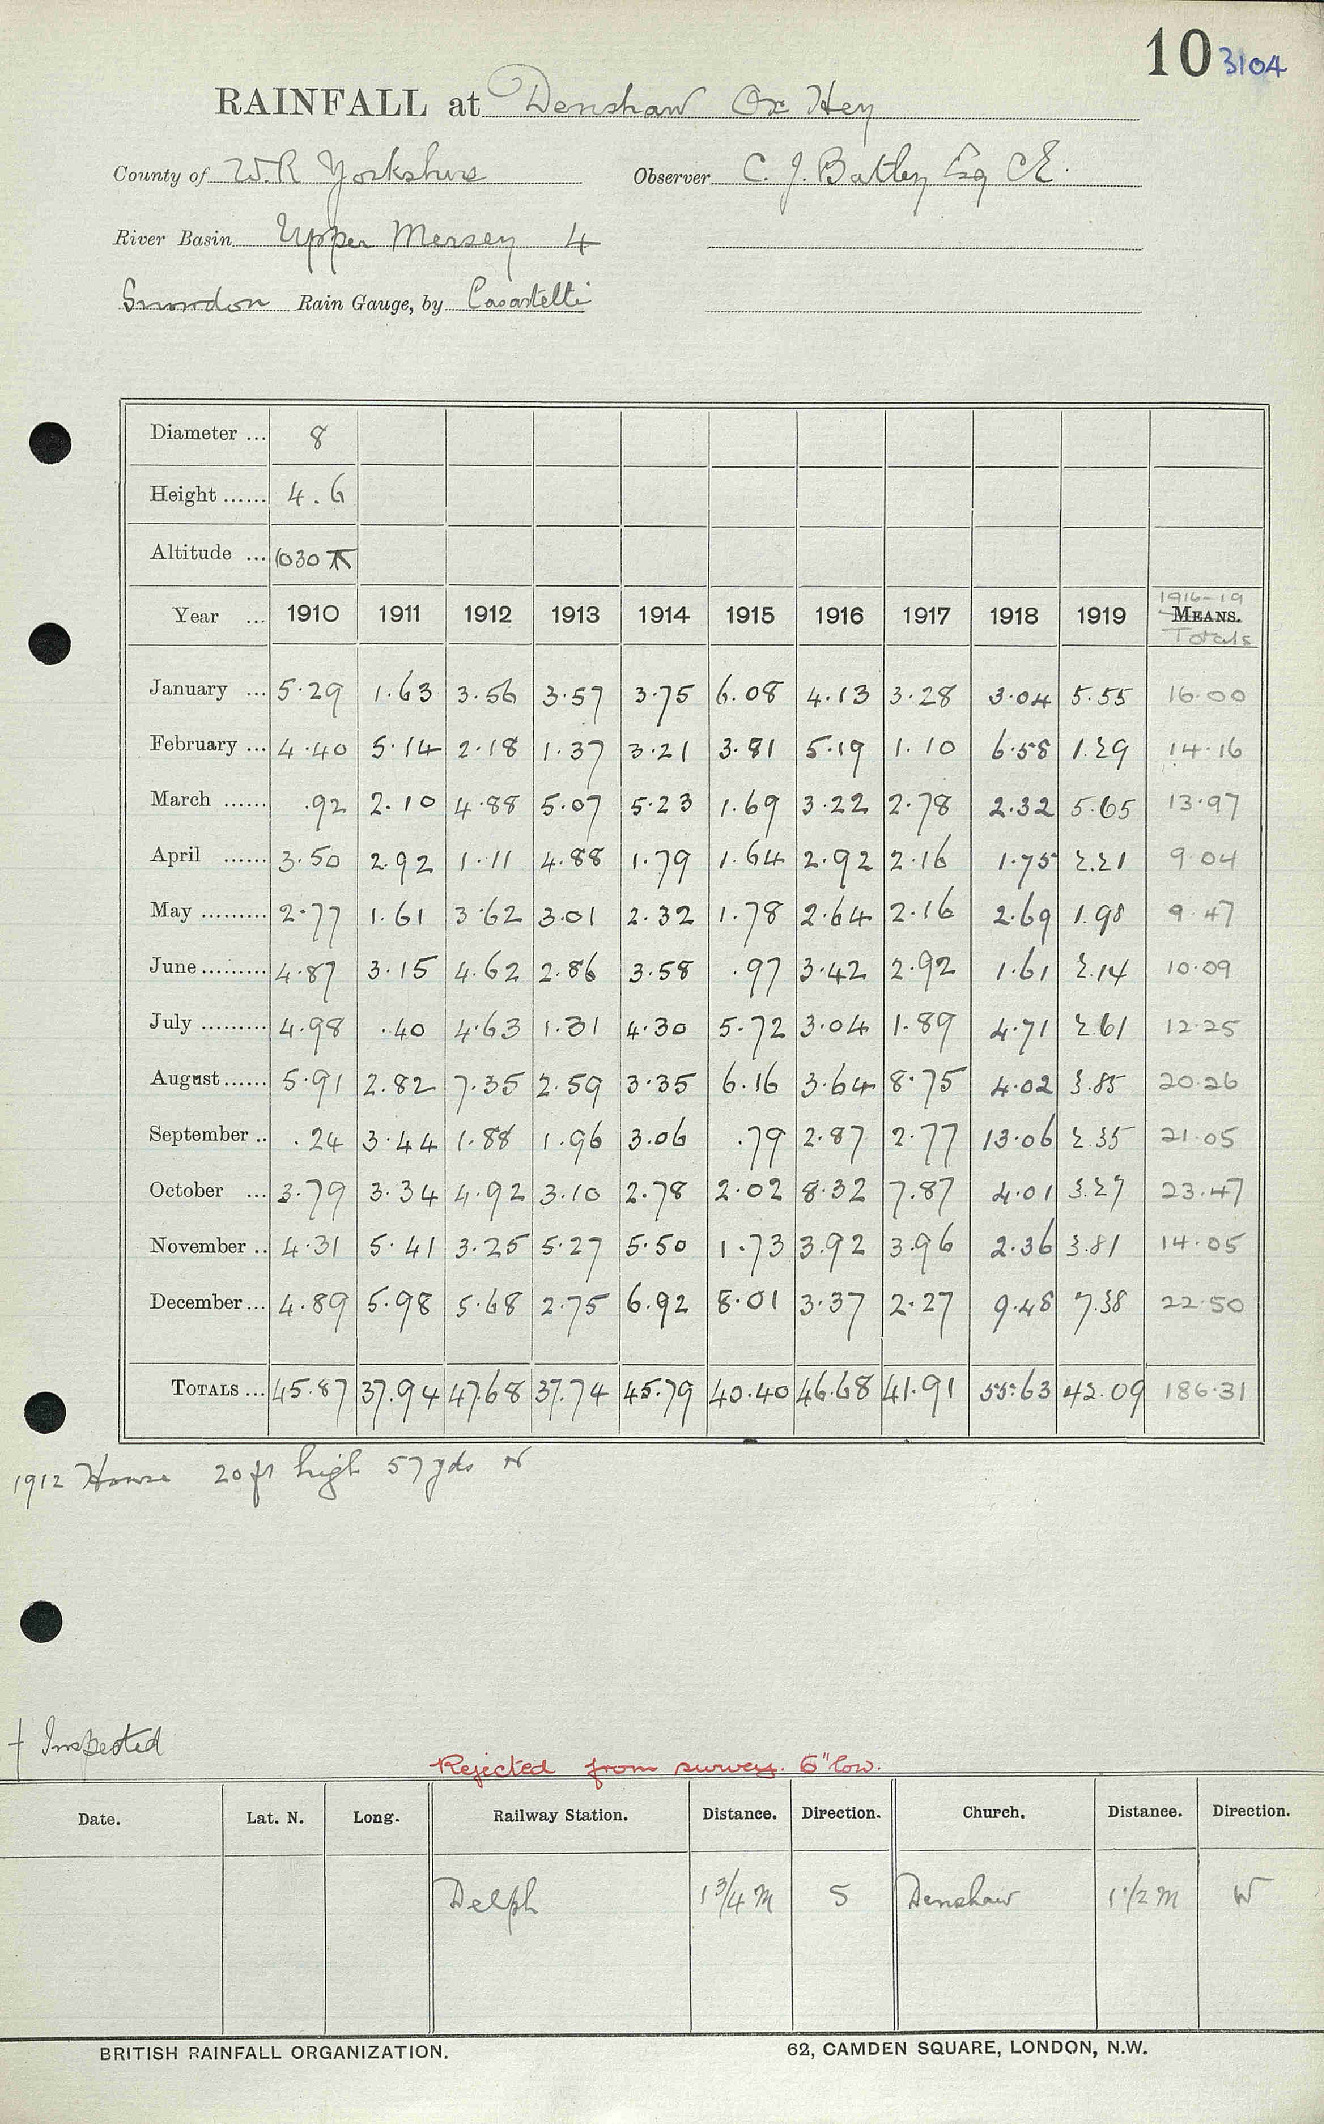 10 3104
RAINFALL at Denshaw Ox Hey
County of W.R Yorkshire Observer C. J. Batley Esq CE.
River Basin Upper Mersey 4
Snowdon Rain Gauge, by Casartelli
Diameter ... 8
Height ...... 4.6
Altitude ... 1030
Year ... 1910 1911 1912 1913 1914 1915 1916 1917 1918 1919 1916-19 MEANS. Totals
January ... 5.29 1.63 3.56 3.57 3.75 6.08 4.13 3.28 3.04 5.55 16.00
February ... 4.40 5.14 2.18 1.37 3.21 3.81 5.19 1.10 6.58 1.29 14.16
March ...... .92 2.10 4.88 5.07 5.23 1.69 3.22 2.78 2.32 5.65 13.97
April ...... 3.50 2.92 1.11 4.88 1.79 1.64 2.92 2.16 1.75 2.21 9.04
May ......... 2.77 1.61 3.62 3.01 2.32 1.78 2.64 2.16 2.69 1.98 9.47
June ......... 4.87 3.15 4.62 2.86 3.58 .97 3.42 2.92 1.61 2.14 10.09
July ......... 4.98 .40 4.63 1.31 4.30 5.72 3.04 1.89 4.71 2.61 12.25
August ...... 5.91 2.82 7.35 2.59 3.35 6.16 3.64 8.75 4.02 3.85 20.26
September .. .24 3.44 1.88 1.96 3.06 .79 2.87 2.77 13.06 2.35 21.05
October ... 3.79 3.34 4.92 3.10 2.78 2.02 8.32 7.87 4.01 3.27 23.47
November .. 4.31 5.41 3.25 5.27 5.50 1.73 3.92 3.96 2.36 3.81 14.05
December ... 4.89 5.98 5.68 2.75 6.92 8.01 3.37 2.27 9.48 7.38 22.50
TOTALS ... 45.87 37.94 47.68 37.74 45.79 40.40 46.68 41.91 55.63 42.09 186.31
1912 House 20 ft high 57 yds N
† Inspected
Rejected from survey. 6" low.
Date. Lat. N. Long. Railway Station. Distance. Direction. Church. Distance. Direction.
Delph 1 3/4 m S Denshaw 1 1/2 m W
BRITISH RAINFALL ORGANIZATION. 62, CAMDEN SQUARE, LONDON, N.W.